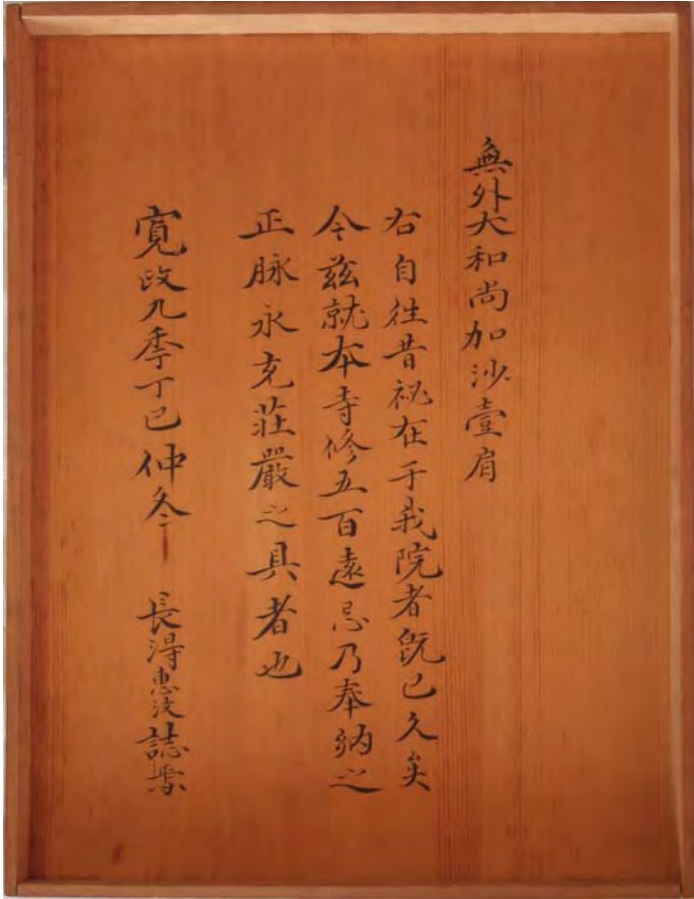 無外大和尚加沙壹肩
右自往昔祕在于我院者既已久矣
今茲就本寺修五百遠忌乃奉納之
正脉永充荘嚴之具者也
寛政九季丁巳仲冬 長得惠汶誌